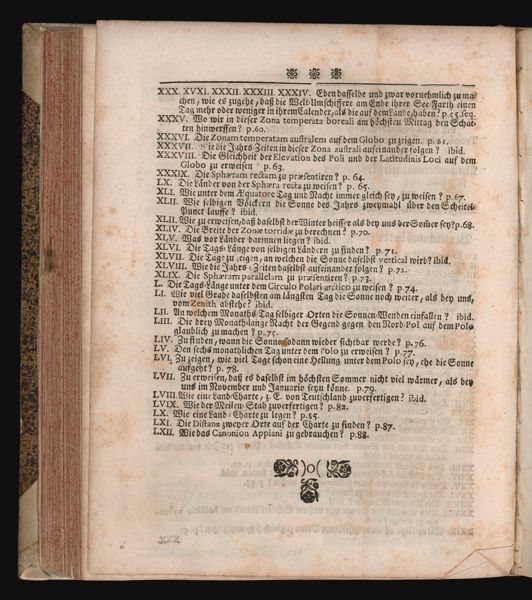 XXX. XVXI. XXXII. XXXIII. XXXIV. Eben dasselbe und zwar vornehmlich zu ma-
chen, wie es zugehe, daß die Welt-Umschiffere am Ende ihrer See-Farth einen
Tag mehr oder weniger in ihrem Calender, als die auf dem Lande, haben? p.55.seq.
XXXV. Wo wir in dieser Zona temperata boreali am höchsten Mittag den Schat-
ten hinwerffen? p.60.
XXXVI. Die Zonam temperatam australem auf dem Globo zu zeigen. p.61.
XXXVII. Wie die Jahrs-Zeiten in dieser Zona australi aufeinander folgen? ibid.
XXXVIII. Die Gleichheit der Elevation des Poli und der Latitudinis Loci auf dem
Globo zu erweisen? p.63.
XXXIX. Die Sphæram rectam zu præsentiren? p. 64.
LX. Die Länder von der Sphæra recta zu weisen? p. 65.
XLI. Wie unter dem Æquatore Tag und Nacht immer gleich sey, zu weisen? p.67.
XLII. Wie selbigen Völckern die Sonne des Jahrs zweymahl über den Scheitel-
Punct lauffe? ibid.
XLII. Wie zu erweisen, daß daselbst der Winter heisser als bey uns der Som̃er sey? p.68.
XLIV. Die Breite der Zonæ torridæ zu berechnen? p.70.
XLV. Was vor Länder darinnen liegen? ibid.
XLVI. Die Tags-Länge von selbigen Ländern zu finden? p.71.
XLVII. Die Tage zu zeigen, an welchen die Sonne daselbst vertical wird? ibid.
XLVIII. Wie die Jahrs-Zeiten daselbst aufeinander folgen? p.72.
XLIX. Die Sphæram parallelam zu præsentiren? p.73.
L. Die Tags-Länge unter dem Circulo Polari arctico zu weisen? p.74.
LI. Wie viel Grade daselbsten am längsten Tag die Sonne noch weiter, als bey uns,
vom Zenith abstehe? ibid.
LII. An welchem Monaths-Tag selbiger Orten die Sonnen-Wenden einfallen? ibid.
LIII. Die drey Monath-lange Nacht der Gegend gegen den Nord-Pol auf dem Polo
glaublich zu machen? p.75.
LIV. Zu finden, wann die Sonne sodann wieder sichtbar werde? p.76.
LV. Den sechs monathlichen Tag unter dem Polo zu erweisen? p.77.
LVI. Zu zeigen, wie viel Tage schon eine Hellung unter dem Polo sey, ehe die Sonne
aufgeht? p. 78.
LVII. Zu erweisen, daß es daselbst im höchsten Sommer nicht viel wärmer, als bey
uns im November und Januario seyn könne. p.79.
LVIII. Wie eine Land-Charte, z. E. von Teutschland zuverfertigen? ibid.
LVIX. Wie der Meilen-Stab zuverfertigen? p.82.
LX. Wie eine Land-Charte zu legen? p.85.
LXI. Die Distanz zweyer Orte auf der Charte zu finden? p.87.
LXII. Wie das Canonion Appiani zu gebrauchen? p.88.